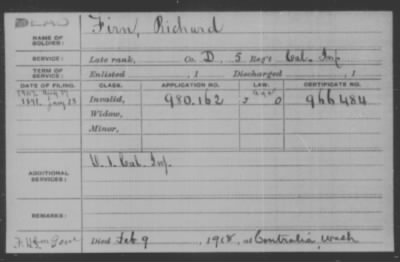 DEAD
NAME OF SOLDIER: Firn, Richard
SERVICE: Late rank, Co. D, 5 Reg't Cal. Inf
TERM OF SERVICE: Enlisted , 1 Discharged , 1
DATE OF FILING. CLASS. APPLICATION NO. LAW. CERTIFICATE NO.
1891. Invalid, 980.162 966484
Widow,
Minor,
ADDITIONAL SERVICES: U. S. Cal. Inf.
REMARKS:
Died Feb 9, 1918, at Centralia, Wash